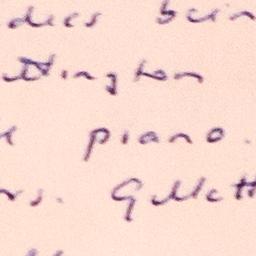 dies bein
ttington
piano.
rs. Gillett